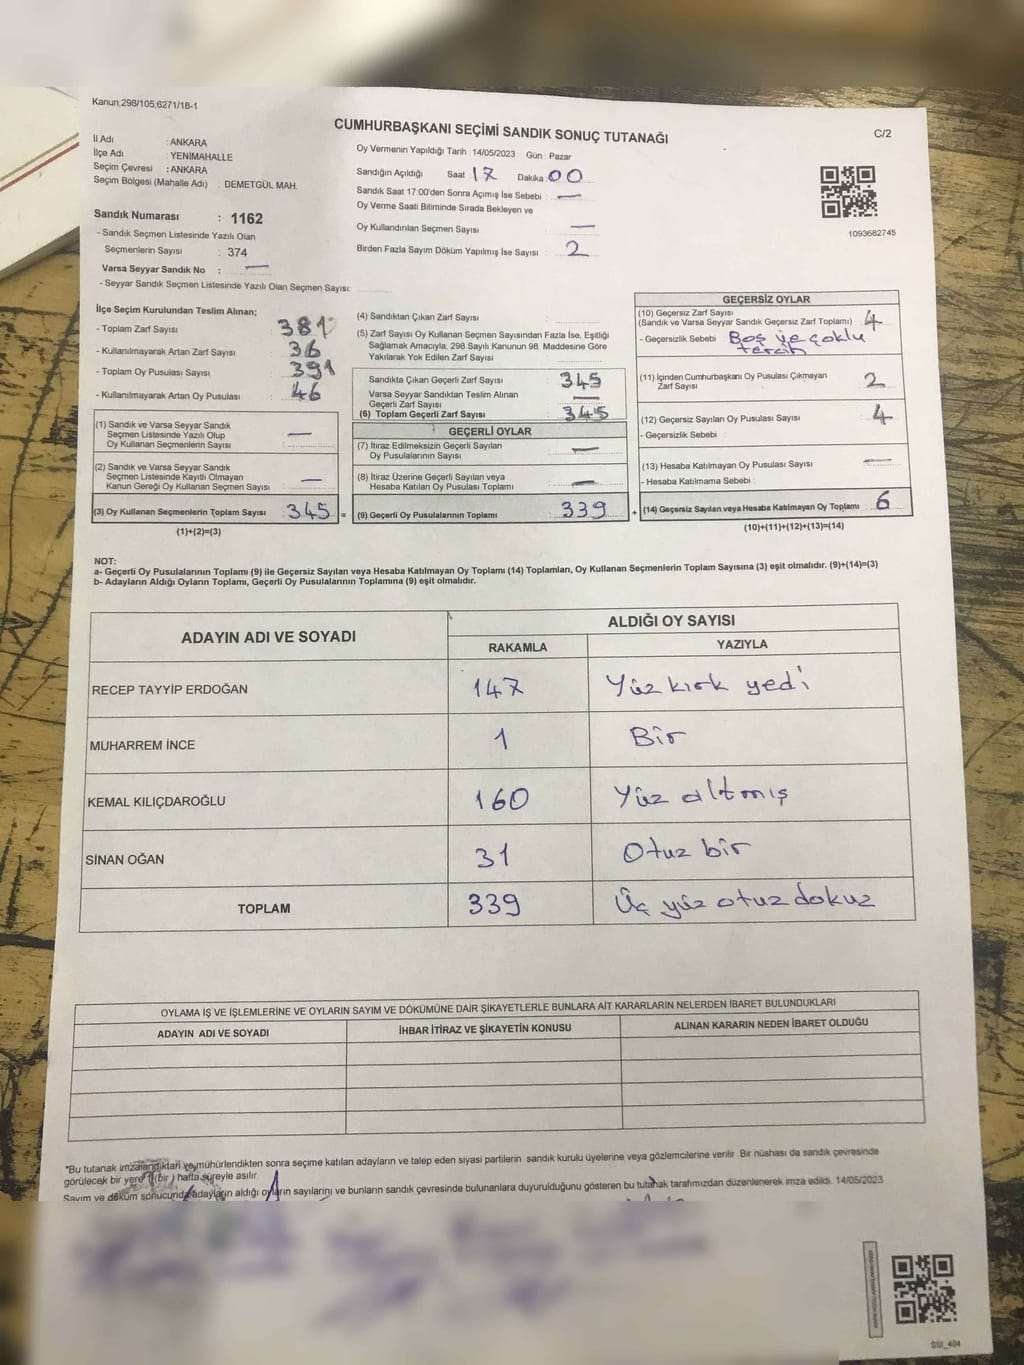 Kanun;298/105;6271/18-1
CUMHURBAŞKANI SEÇİMİ SANDIK SONUÇ TUTANAĞI
C/2
İl Adı : ANKARA
İlçe Adı : YENİMAHALLE
Seçim Çevresi : ANKARA
Seçim Bölgesi (Mahalle Adı) : DEMETGÜL MAH.
Sandık Numarası : 1162
- Sandık Seçmen Listesinde Yazılı Olan
Seçmenlerin Sayısı : 374
Varsa Seyyar Sandık No : —
- Seyyar Sandık Seçmen Listesinde Yazılı Olan Seçmen Sayısı:
Oy Vermenin Yapıldığı Tarih : 14/05/2023 Gün : Pazar
Sandığın Açıldığı Saat 17 Dakika : 00
Sandık Saat 17:00'den Sonra Açımış İse Sebebi : —
Oy Verme Saati Bitiminde Sırada Bekleyen ve
Oy Kullandırılan Seçmen Sayısı —
Birden Fazla Sayım Döküm Yapılmış İse Sayısı : 2
1093682745
İlçe Seçim Kurulundan Teslim Alınan;
- Toplam Zarf Sayısı : 381
- Kullanılmayarak Artan Zarf Sayısı : 36
- Toplam Oy Pusulası Sayısı : 391
- Kullanılmayarak Artan Oy Pusulası : 46
(1) Sandık ve Varsa Seyyar Sandık
Seçmen Listesinde Yazılı Olup
Oy Kullanan Seçmenlerin Sayısı : —
(2) Sandık ve Varsa Seyyar Sandık
Seçmen Listesinde Kayıtlı Olmayan
Kanun Gereği Oy Kullanan Seçmen Sayısı : —
(3) Oy Kullanan Seçmenlerin Toplam Sayısı : 345 =
(1)+(2)=(3)
(4) Sandıktan Çıkan Zarf Sayısı :
(5) Zarf Sayısı Oy Kullanan Seçmen Sayısından Fazla İse, Eşitliği
Sağlamak Amacıyla, 298 Sayılı Kanunun 98. Maddesine Göre
Yakılarak Yok Edilen Zarf Sayısı :
Sandıkta Çıkan Geçerli Zarf Sayısı : 345
Varsa Seyyar Sandıktan Teslim Alınan
Geçerli Zarf Sayısı : —
(6) Toplam Geçerli Zarf Sayısı : 345
GEÇERLİ OYLAR
(7) İtiraz Edilmeksizin Geçerli Sayılan
Oy Pusulalarının Sayısı : —
(8) İtiraz Üzerine Geçerli Sayılan veya
Hesaba Katılan Oy Pusulası Toplamı : —
(9) Geçerli Oy Pusulalarının Toplamı : 339 +
GEÇERSİZ OYLAR
(10) Geçersiz Zarf Sayısı
(Sandık ve Varsa Seyyar Sandık Geçersiz Zarf Toplamı) : 4
- Geçersizlik Sebebi : Boş ve çoklu
tercih
(11) İçinden Cumhurbaşkanı Oy Pusulası Çıkmayan
Zarf Sayısı : 2
(12) Geçersiz Sayılan Oy Pusulası Sayısı : 4
- Geçersizlik Sebebi :
(13) Hesaba Katılmayan Oy Pusulası Sayısı : —
- Hesaba Katılmama Sebebi :
(14) Geçersiz Sayılan veya Hesaba Katılmayan Oy Toplamı : 6
(10)+(11)+(12)+(13)=(14)
NOT:
a- Geçerli Oy Pusulalarının Toplamı (9) ile Geçersiz Sayılan veya Hesaba Katılmayan Oy Toplamı (14) Toplamları, Oy Kullanan Seçmenlerin Toplam Sayısına (3) eşit olmalıdır. (9)+(14)=(3)
b- Adayların Aldığı Oyların Toplamı, Geçerli Oy Pusulalarının Toplamına (9) eşit olmalıdır.
ADAYIN ADI VE SOYADI
ALDIĞI OY SAYISI
RAKAMLA YAZIYLA
RECEP TAYYİP ERDOĞAN 147 Yüz kırk yedi
MUHARREM İNCE 1 Bir
KEMAL KILIÇDAROĞLU 160 Yüz altmış
SİNAN OĞAN 31 Otuz bir
TOPLAM 339 Üç yüz otuz dokuz
OYLAMA İŞ VE İŞLEMLERİNE VE OYLARIN SAYIM VE DÖKÜMÜNE DAİR ŞİKAYETLERLE BUNLARA AİT KARARLARIN NELERDEN İBARET BULUNDUKLARI
ADAYIN ADI VE SOYADI İHBAR İTİRAZ VE ŞİKAYETİN KONUSU ALINAN KARARIN NEDEN İBARET OLDUĞU
*Bu tutanak imzalandıktan ve mühürlendikten sonra seçime katılan adayların ve talep eden siyasi partilerin sandık kurulu üyelerine veya gözlemcilerine verilir. Bir nüshası da sandık çevresinde
görülecek bir yere 1 (bir) hafta süreyle asılır.
Sayım ve döküm sonucunda adayların aldığı oyların sayılarını ve bunların sandık çevresinde bulunanlara duyurulduğunu gösteren bu tutanak tarafımızdan düzenlenerek imza edildi. 14/05/2023